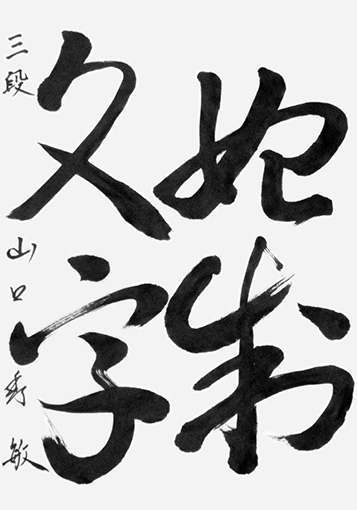 始制
文字
三段 山口秀敏